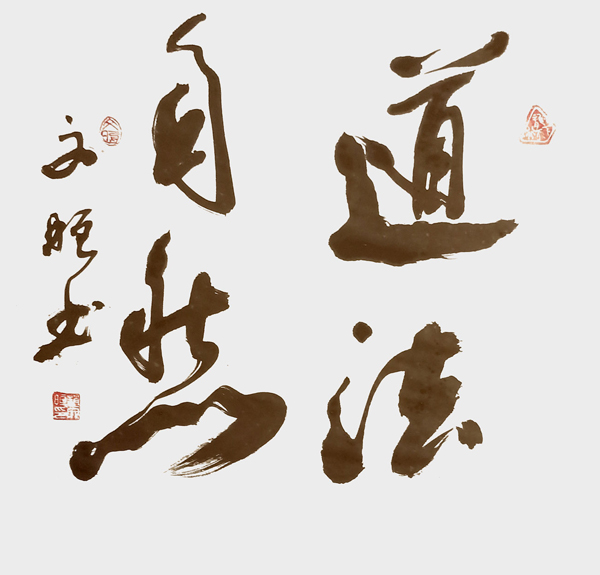 道法
自然
文
书